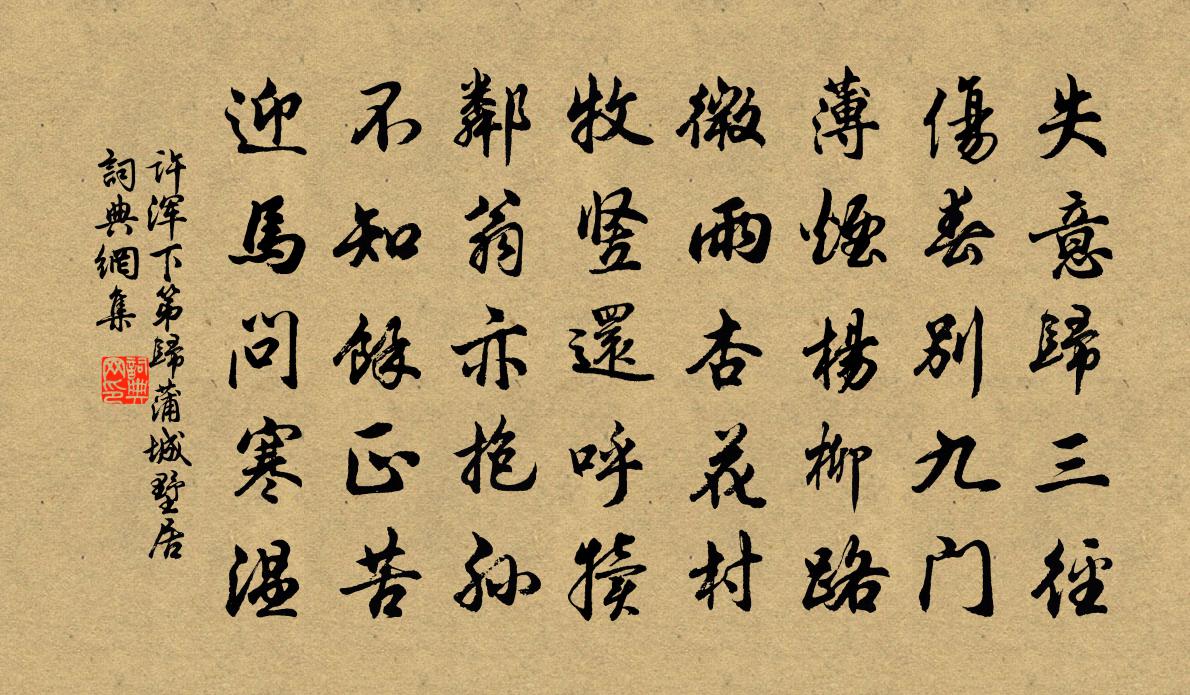 失意歸三徑
傷春別九門
薄煙楊柳路
微雨杏花村
牧豎還呼犢
鄰翁亦抱孫
不知餘正苦
迎馬問寒溫
许浑下第歸蒲城墅居
詞典網集
詞典网印